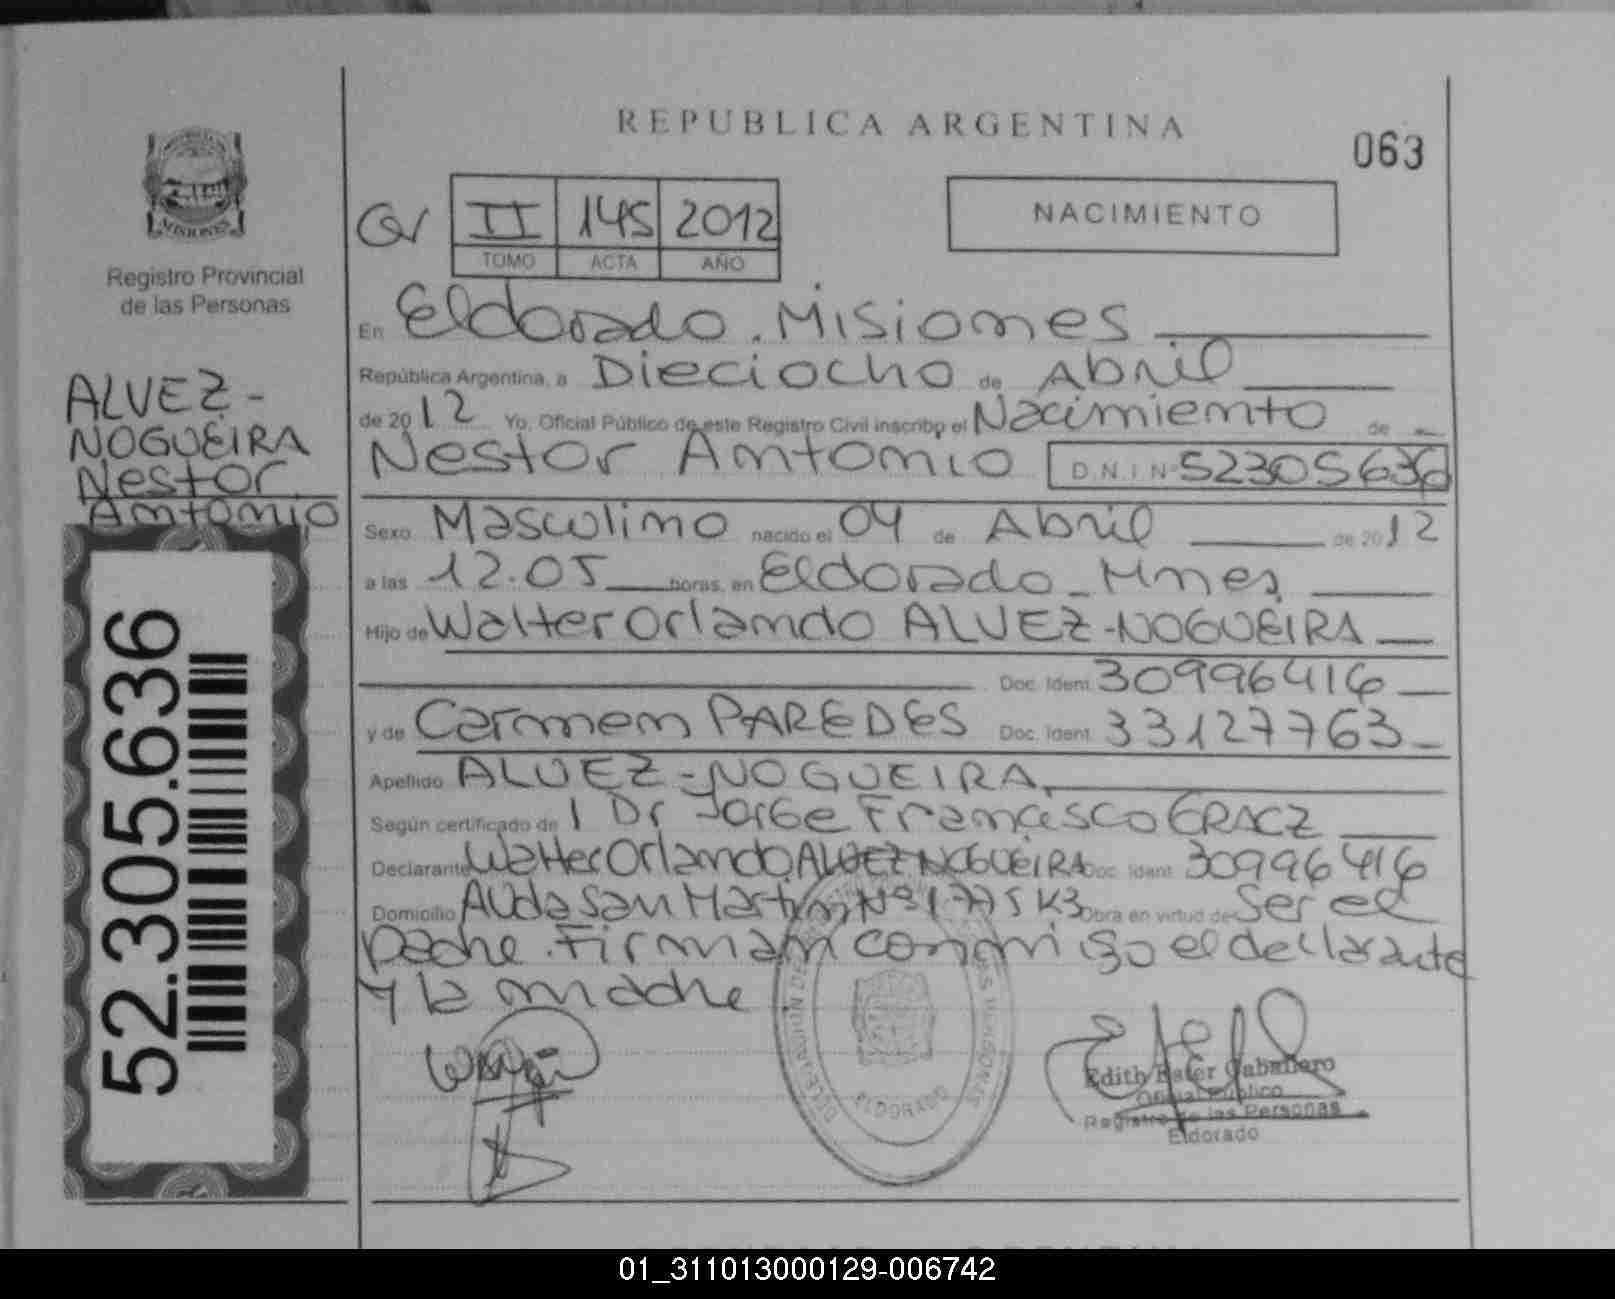 REPUBLICA ARGENTINA
063
MISIONES
Registro Provincial
de las Personas
II 145 2012
TOMO ACTA AÑO
NACIMIENTO
ALVEZ-
NOGUEIRA
Nestor
Antonio
52.305.636
En Eldorado. Misiones
República Argentina, a Dieciocho de Abril
de 2012 Yo, Oficial Público de este Registro Civil inscribo el Nacimiento de
Nestor Antonio D.N.I. Nº 52305636
Sexo Masculino nacido el 04 de Abril de 2012
a las 12.05 horas, en Eldorado - Mnes
Hijo de Walter Orlando ALVEZ-NOGUEIRA
Doc. Ident. 30996416
y de Carmen PAREDES Doc. Ident. 33127763
Apellido ALVEZ-NOGUEIRA
Según certificado de 1 Dr Jorge Francisco GRACZ
Declarante Walter Orlando ALVEZ NOGUEIRA Doc. Ident. 30996416
Domicilio Avda San Martin Nº 1775 K3 Obra en virtud de Ser el
padre. Firman conmigo el declarante
y la madre
ELDORADO
Edith Ester Caballero
Oficial Público
Registro de las Personas
Eldorado
01_311013000129-006742